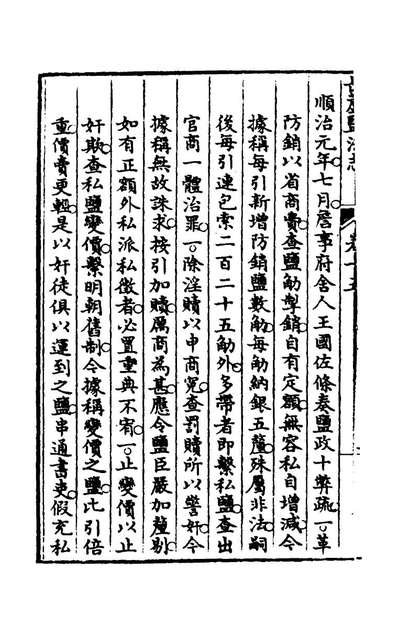 順治元年七月詹事府舍人王國佐條奏鹽政十弊疏一革
防銷以省商費查鹽觔掣銷自有定額無容私自增減今
據稱每引新增防銷鹽數觔每觔納銀五釐殊屬非法嗣
後每引連包索二百二十五觔外多帶者即繫私鹽查出
官商一體治罪一除淫贖以申商冤查罰贖所以警奸今
據稱無故誅求按引加贖厲商為甚應令鹽臣嚴加釐剔
如有正額外私派私徵者必置重典不宥一止變價以止
奸欺查私鹽變價繫明朝舊制今據稱變價之鹽比引倍
重價賣更輕是以奸徒俱以運到之鹽串通書吏假充私